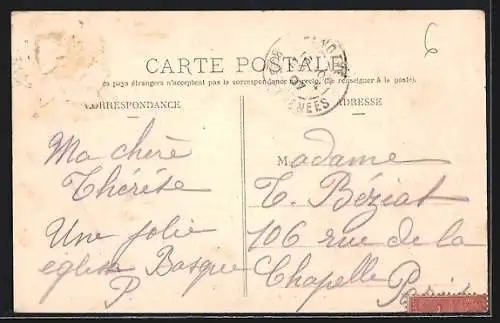 6
CARTE POSTALE
pays étrangers n'acceptent pas la correspondance au recto, (Se renseigner à la poste).
CORRESPONDANCE
ADRESSE
Ma chère
Thérèse
Une jolie
église Basque
P
Madame
T. Béziat
106 rue de la
Chapelle